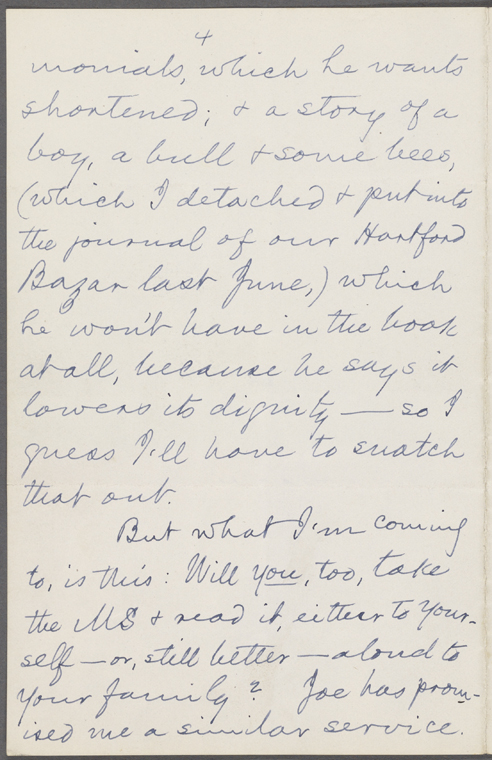 4
monials, which he wants
shortened; & a story of a
boy, a bull & some bees,
(which I detached & put into
the journal of our Hartford
Bazar last June,) which
he won't have in the book
at all, because he says it
lowers its dignity — so I
guess I'll have to snatch
that out.
But what I'm coming
to, is this: Will you, too, take
the MS & read it, either to your-
self — or, still better — aloud to
your family? Joe has prom-
ised me a similar service.